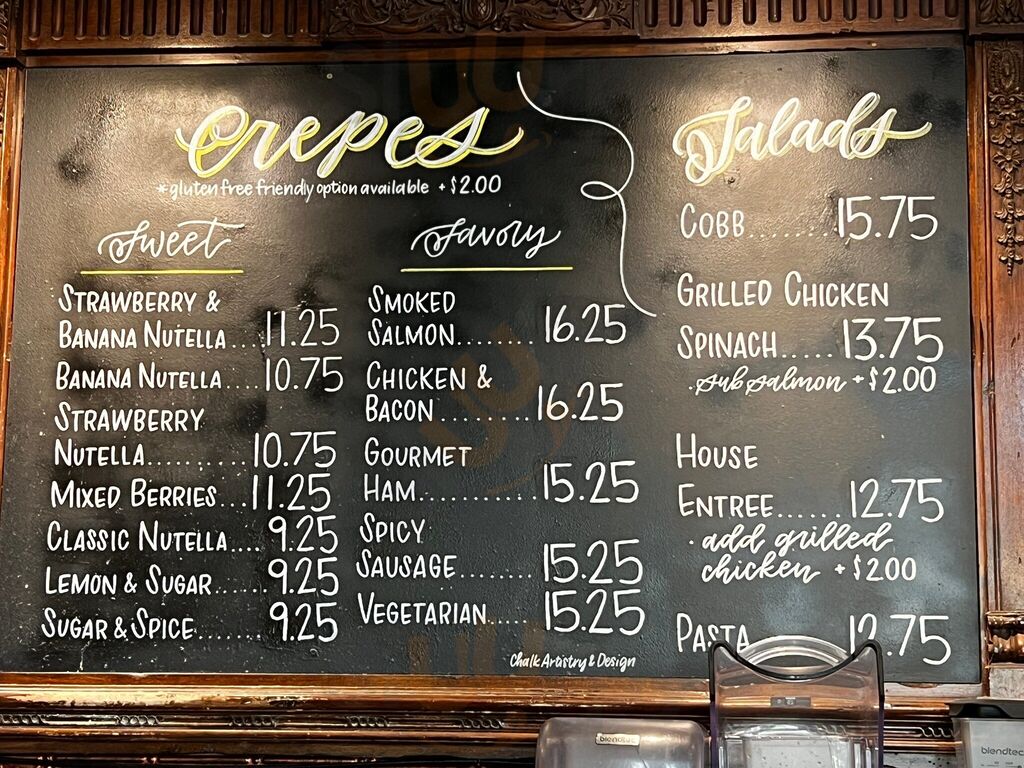 Crepes
*gluten free friendly option available + $2.00
Sweet
Strawberry &
Banana Nutella...11.25
Banana Nutella....10.75
Strawberry
Nutella..........10.75
Mixed Berries...11.25
Classic Nutella....9.25
Lemon & Sugar......9.25
Sugar & Spice.......9.25
Savory
Smoked
Salmon........16.25
Chicken &
Bacon.........16.25
Gourmet
Ham............15.25
Spicy
Sausage........15.25
Vegetarian.....15.25
Chalk Artistry & Design
Salads
Cobb........15.75
Grilled Chicken
Spinach.....13.75
· sub salmon + $2.00
House
Entree......12.75
· add grilled
chicken + $2.00
Pasta 12.75
blendtec
blendtec